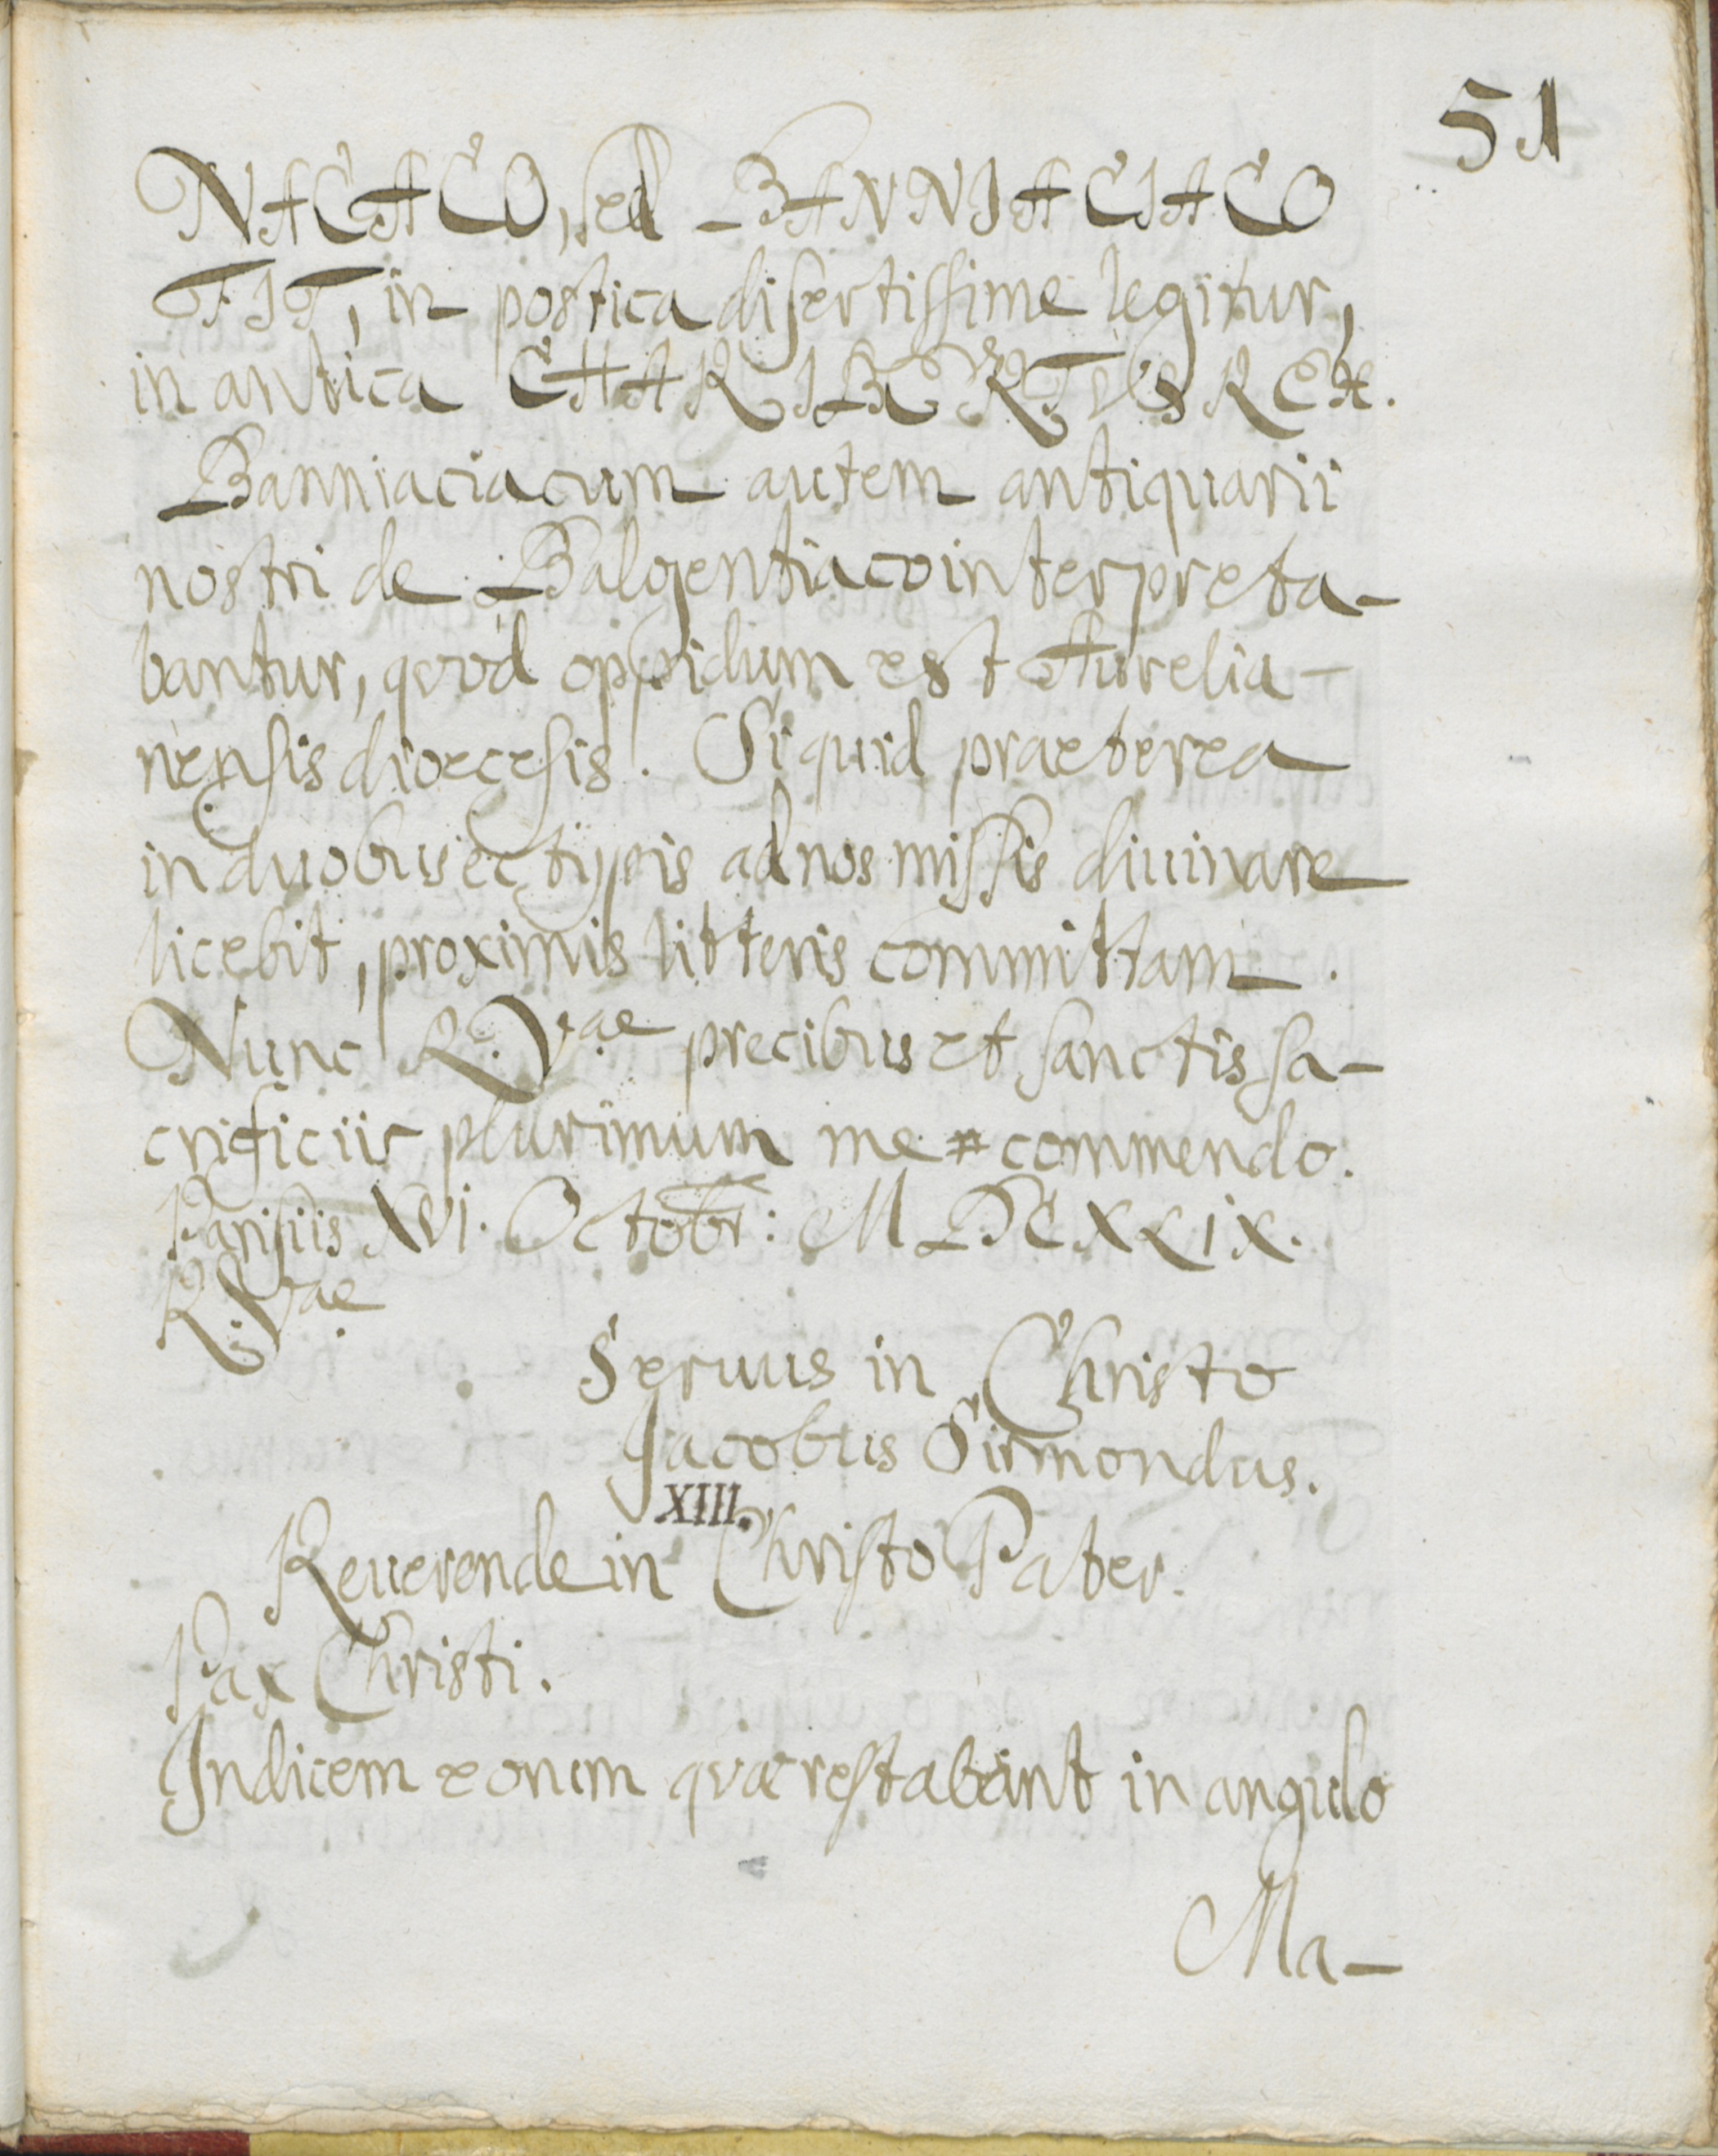 51
NACACO, sed BANNIACIACO
FIT, in postica disertissime legitur,
in antica CHARIBERTVS REX.
Banniaciacum autem antiquarii
nostri de Balgentiaco interpreta-
bantur, quod oppidum est Aurelia-
nensis dioecesis. Si quid praeterea
in duobus ectypis ad nos missis diuinare
licebit, proximis litteris committam.
Nunc R. Vae precibus et sanctis sa-
crificiis plurimum me commendo.
Parisiis XVI. Octobr: MDCXLIX.
R. Vae
Seruus in Christo
Jacobus Sirmondus.
XIII.
Reuerende in Christo Pater.
Pax Christi.
Indicem eorum quae restabant in angulo
Ma-